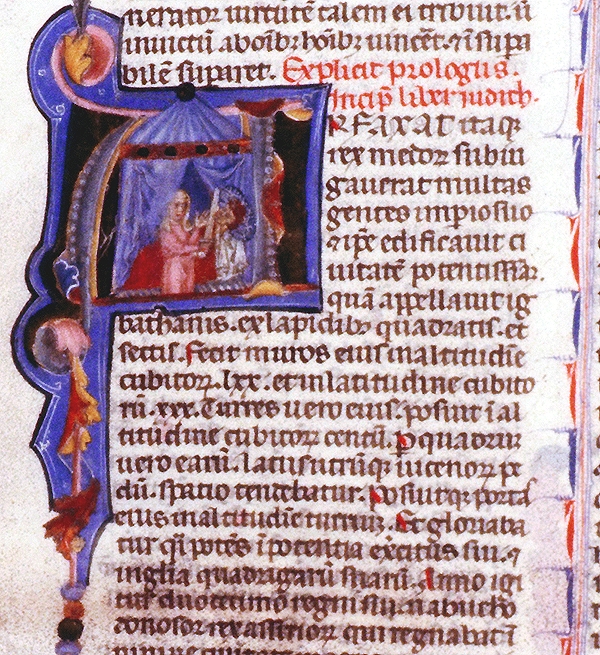 nerator uirtutē talem ei tribuit. ū
inuictū ab oīb; hoīb; uincēt. ⁊ īsupa
bilē suparet. Explicit prologus.
Incip̄ liber iudith.
RFAXAT itaq;
rex medoꝝ subiu
gauerat multas
gentes impio suo
⁊ ip̄e edificauit ci
uitatē potentissimā.
quā appellauit ig
bathanis. ex lapidib; quadratis. et
sectis. fecit muros eius in altitudīe
cubitoꝝ. lxx. et in latitudine cubito
rū. xxx. Turres uero eius. posuit ī al
titudine cubitoꝝ centū. P quadrū
uero earū. latus utrūq; uicenoꝝ pe
dū. spatio tendebatur. Posuitq; portas
eius in altitudīe turriū. Et gloriaba
tur q̄i potēs ī potentia exercitus sui. ⁊
in glīa quadrigarū suarū. Anno igi
tur duodecimo regni sui nabucho
donosor rex assirioꝝ qui regnabat ī